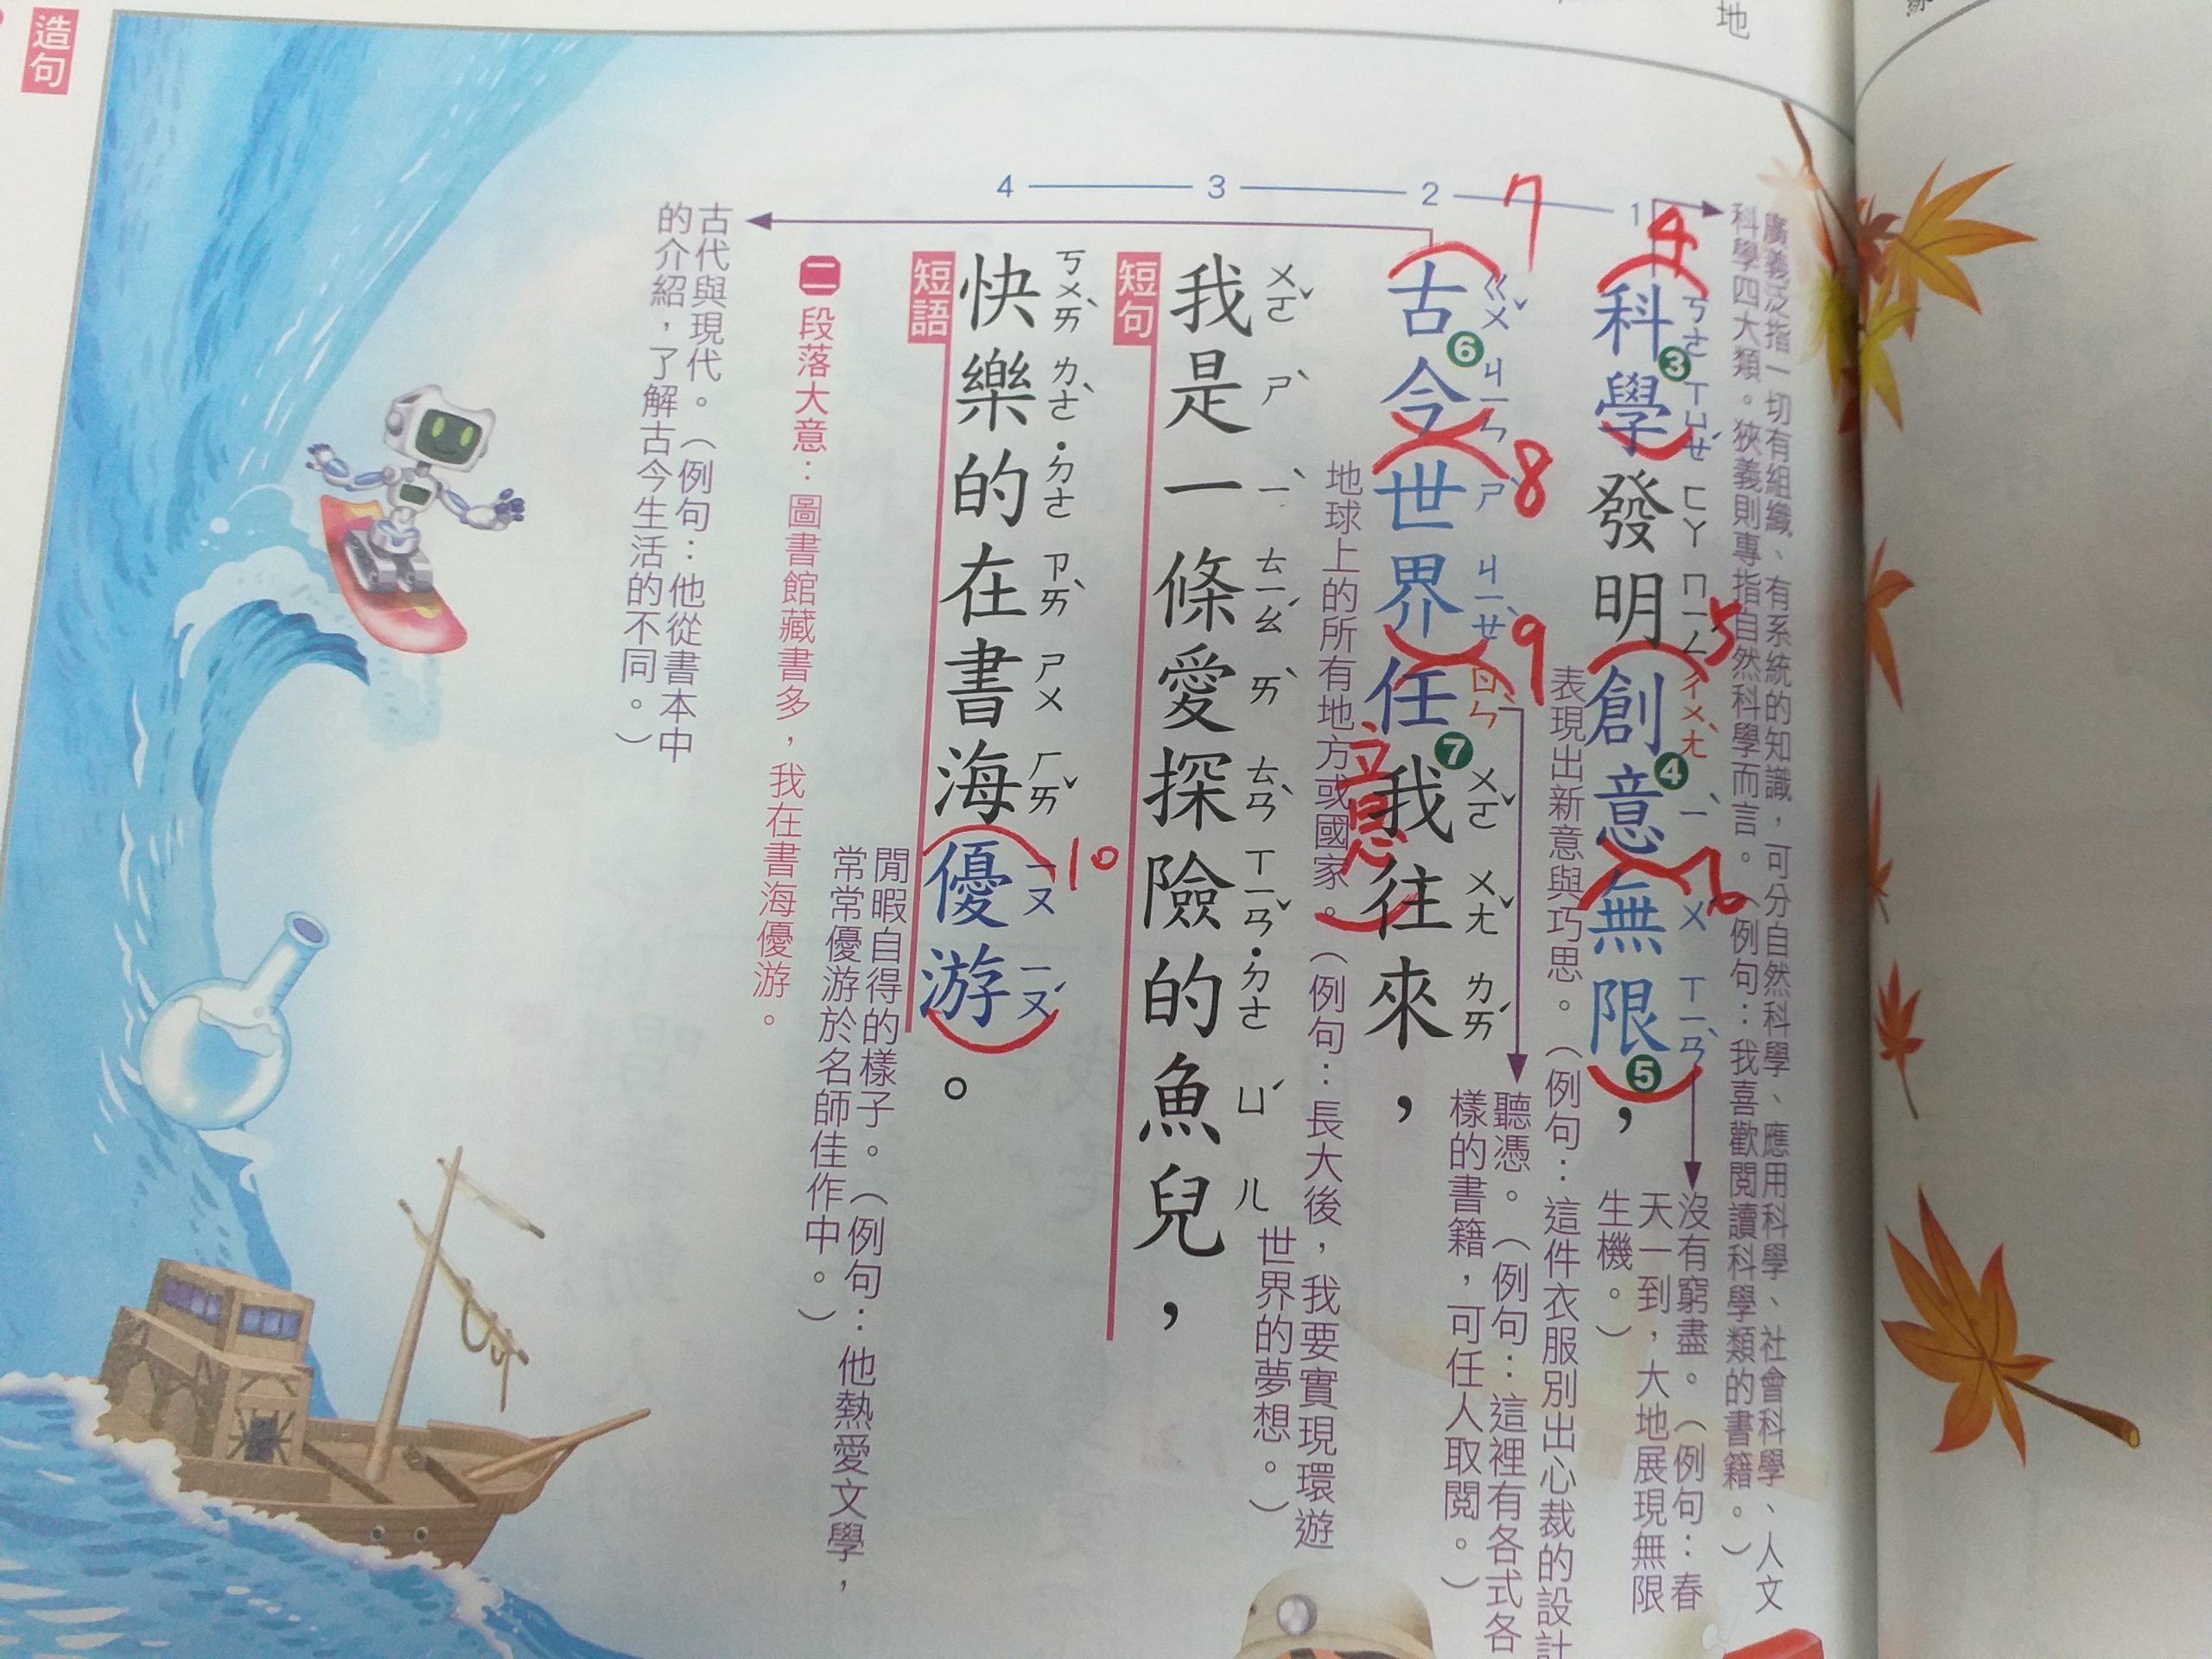 地
1
2
3
4
廣義泛指一切有組織、有系統的知識，可分自然科學、應用科學、社會科學、人文
科學四大類。狹義則專指自然科學而言。（例句：我喜歡閱讀科學類的書籍。）
4
科學發明創意無限，
ㄎㄜ ㄒㄩㄝˊ ㄈㄚ ㄇㄧㄥˊ ㄔㄨㄤˋ ㄧˋ ㄨˊ ㄒㄧㄢˋ
3
4
5
5
6
沒有窮盡。（例句：春
天一到，大地展現無限
生機。）
表現出新意與巧思。（例句：這件衣服別出心裁的設計
7
古今世界任我往來，
ㄍㄨˇ ㄐㄧㄣ ㄕˋ ㄐㄧㄝˋ ㄖㄣˋ ㄨㄛˇ ㄨㄤˇ ㄌㄞˊ
6
7
8
9
意
聽憑。（例句：這裡有各式各
樣的書籍，可任人取閱。）
地球上的所有地方或國家。（例句：長大後，我要實現環遊
世界的夢想。）
我是一條愛探險的魚兒，
ㄨㄛˇ ㄕˋ ㄧˋ ㄊㄧㄠˊ ㄞˋ ㄊㄢˋ ㄒㄧㄢˇ ˙ㄉㄜ ㄩˊ ㄦ
短句
快樂的在書海優游。
ㄎㄨㄞˋ ㄌㄜˋ ˙ㄉㄜ ㄗㄞˋ ㄕㄨ ㄏㄞˇ ㄧㄡ ㄧㄡˊ
10
短語
閒暇自得的樣子。（例句：他熱愛文學，
常常優游於名師佳作中。）
二 段落大意：圖書館藏書多，我在書海優游。
古代與現代。（例句：他從書本中
的介紹，了解古今生活的不同。）
造句